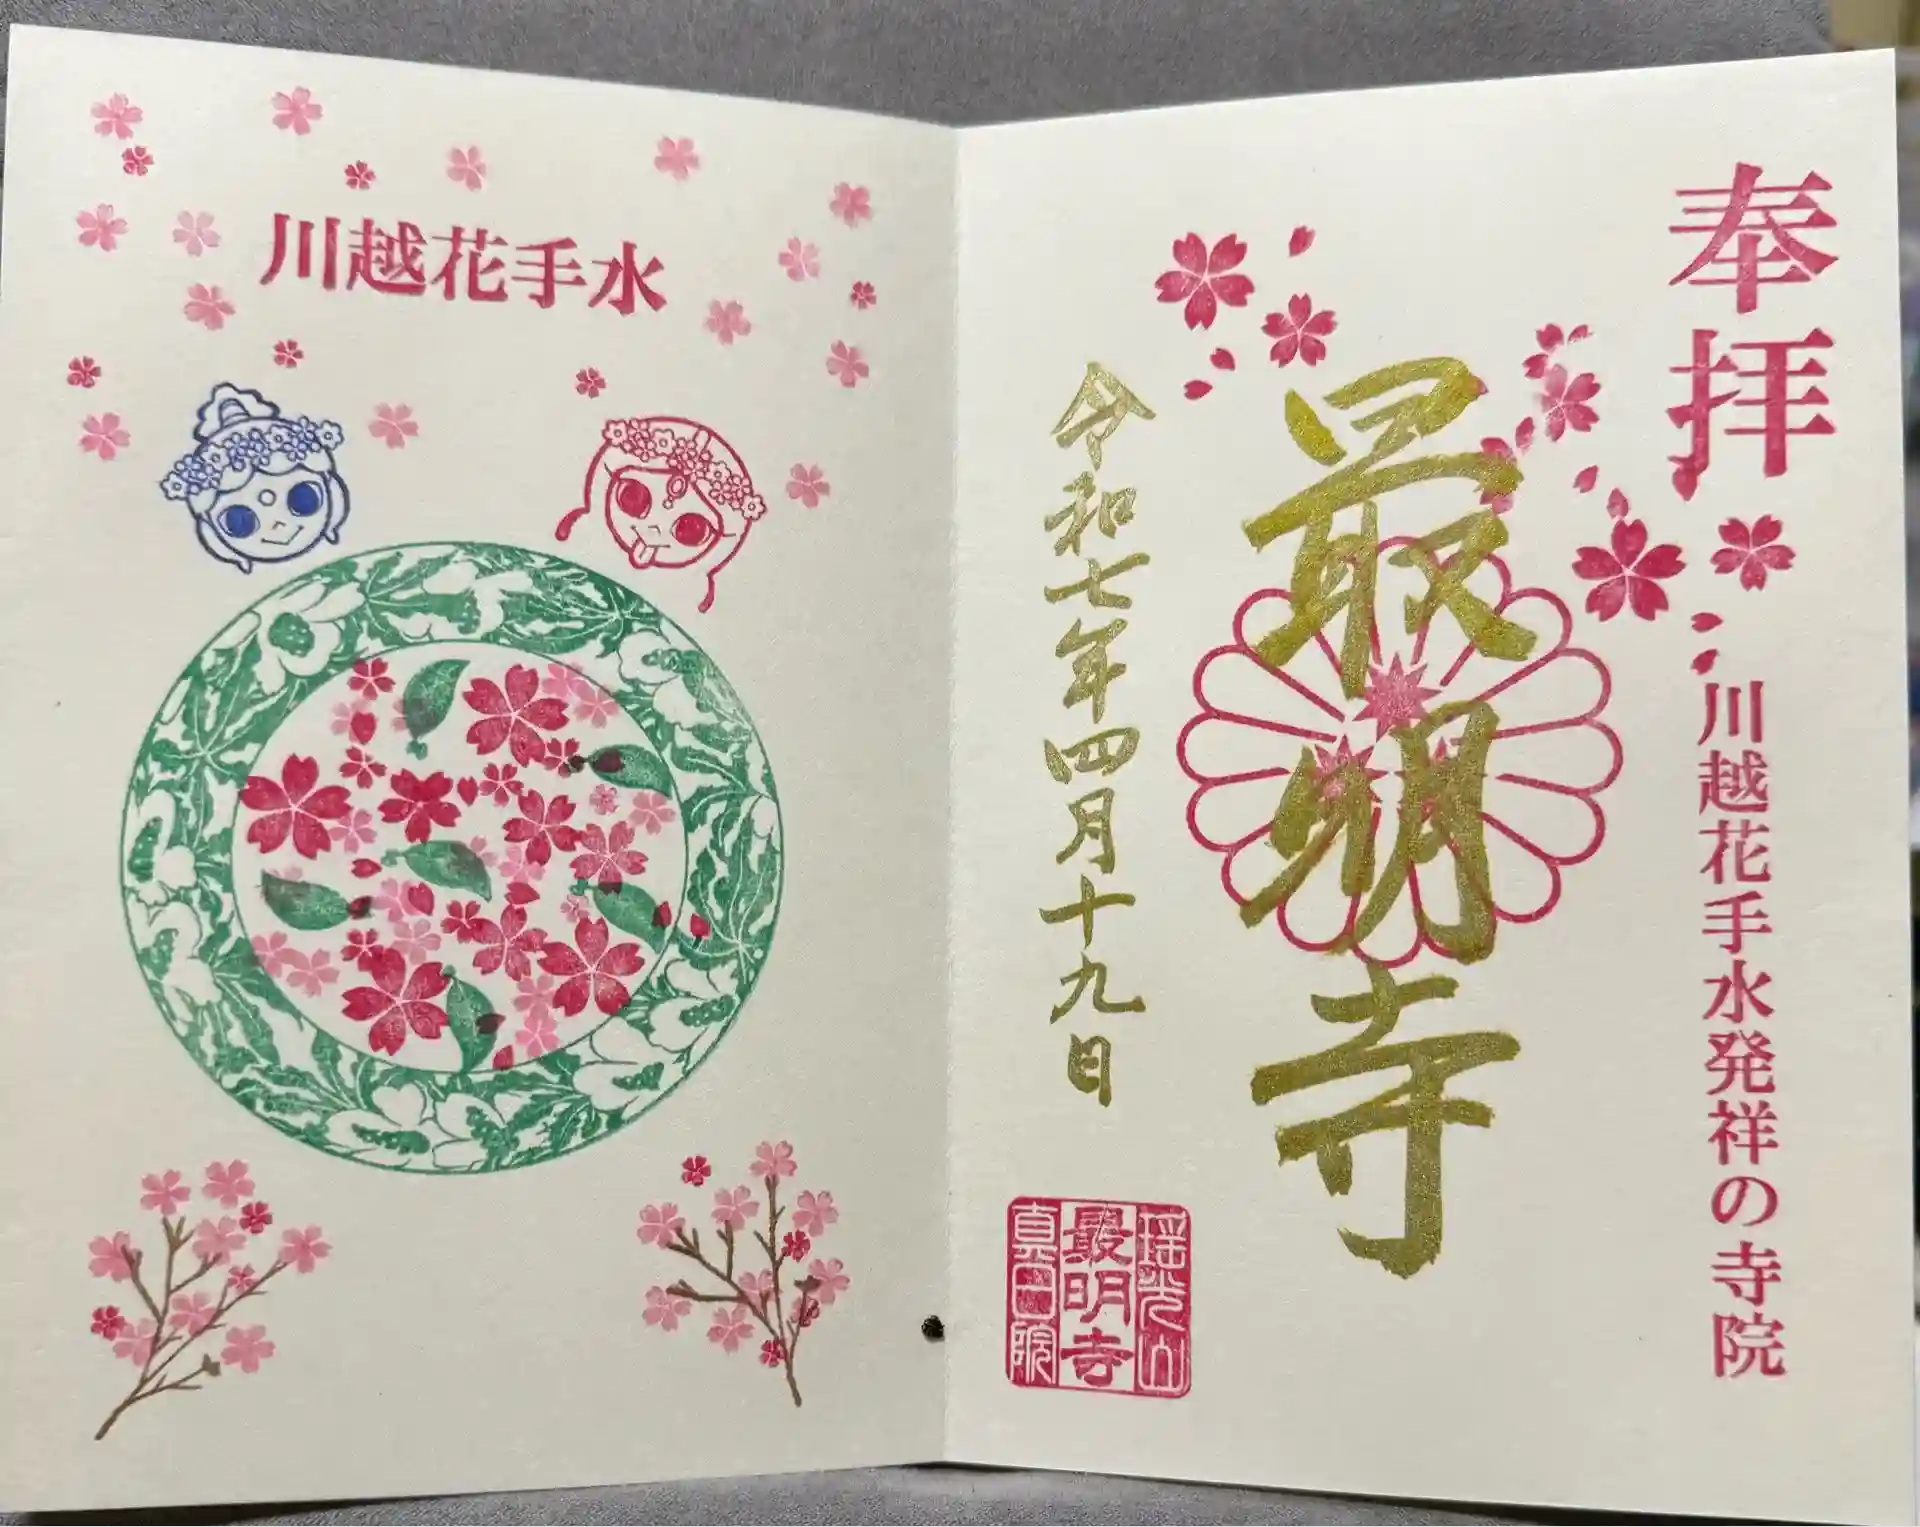 奉拝
川越花手水発祥の寺院
最明寺
令和七年四月十九日
瑶光山
最明寺
真言院
川越花手水